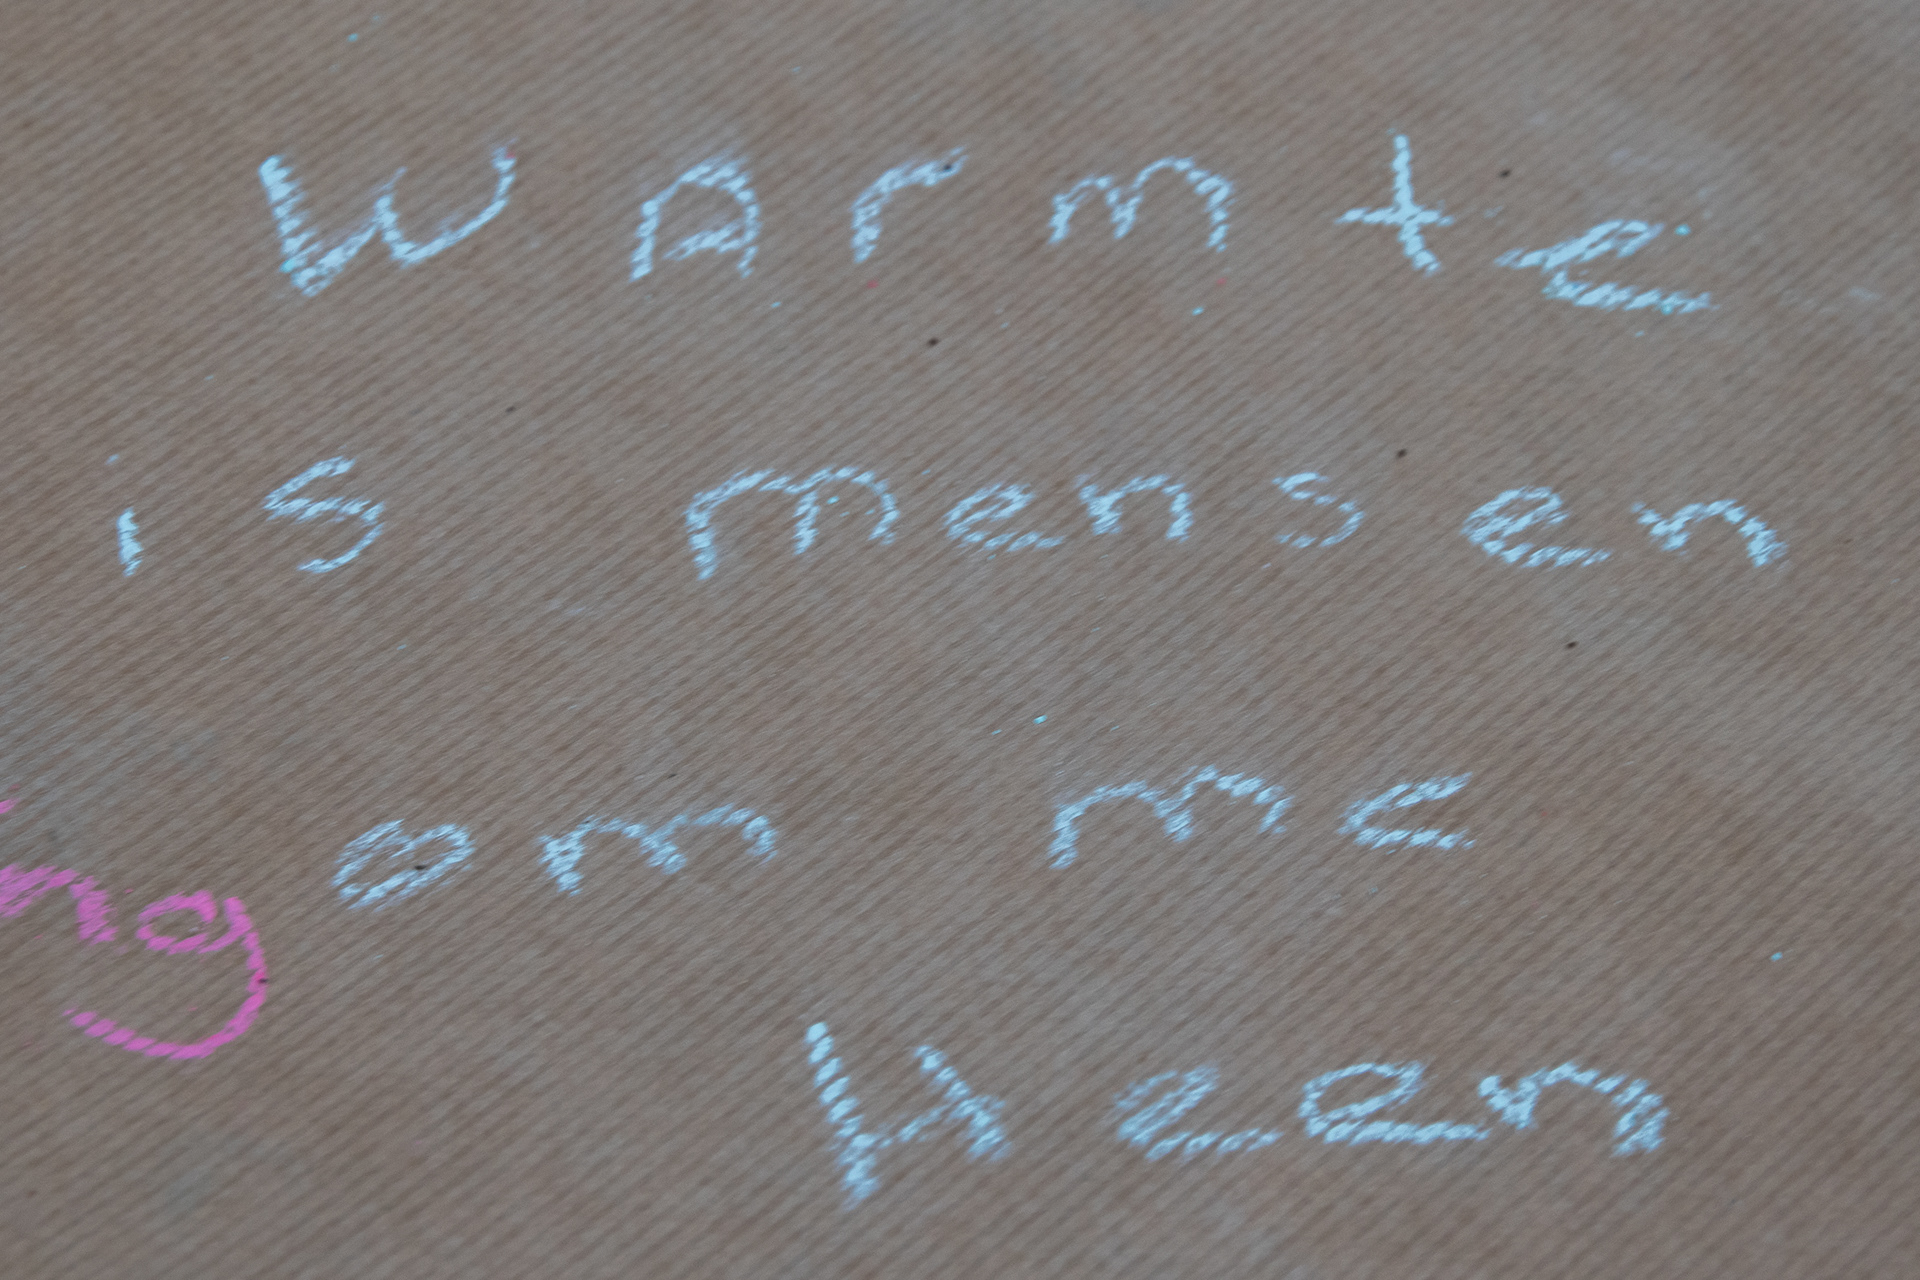 WArmte
is mensen
om me
ng
Heen